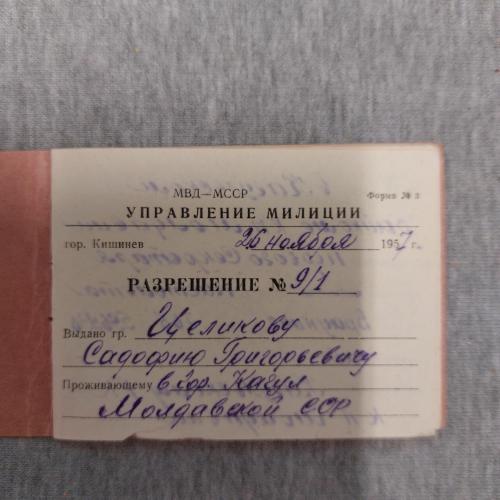 МВД—МССР
Форма № 3
УПРАВЛЕНИЕ МИЛИЦИИ
гор. Кишинев 26 ноября 1957 г.
РАЗРЕШЕНИЕ № 9/1
Выдано гр. Целикову
Садофию Григорьевичу
Проживающему в гор. Кагул
Молдавской ССР